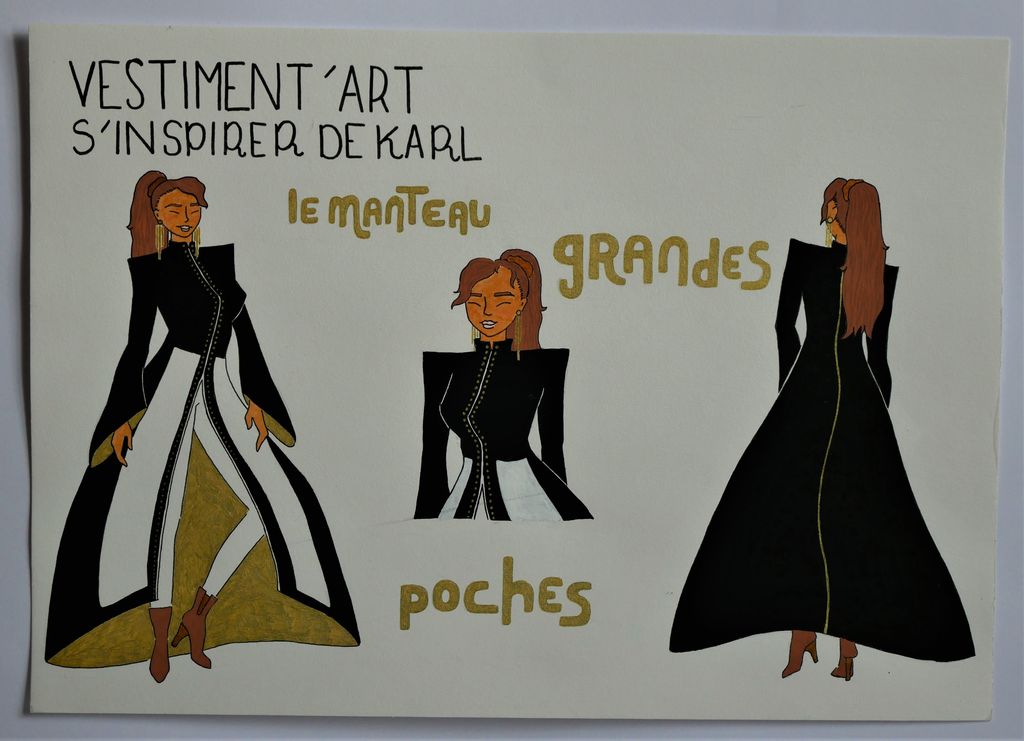 VESTIMENT'ART
S'INSPIRER DE KARL
le manteau
grandes
poches